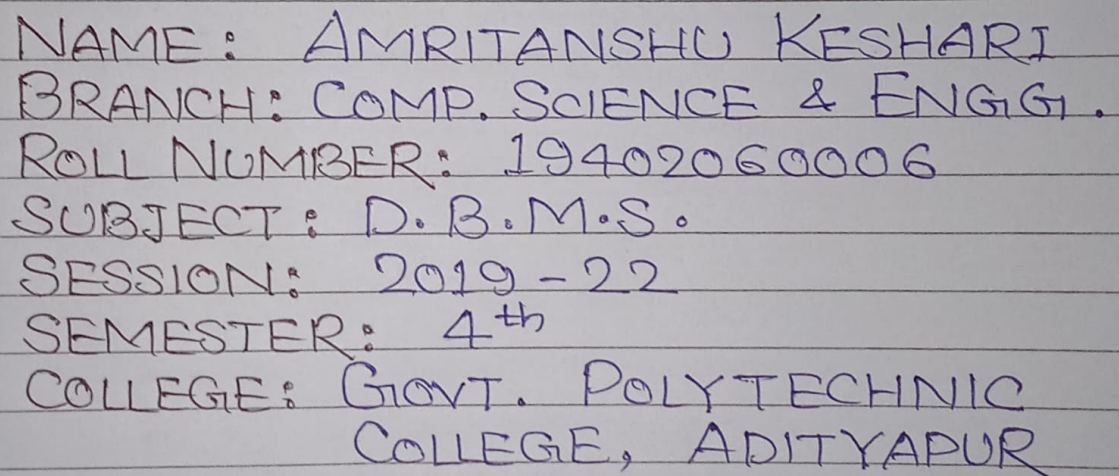 NAME: AMRITANSHU KESHARI
BRANCH: COMP. SCIENCE & ENGG.
ROLL NUMBER: 19402060006
SUBJECT: D.B.M.S.
SESSION: 2019-22
SEMESTER: 4th
COLLEGE: GOVT. POLYTECHNIC
COLLEGE, ADITYAPUR